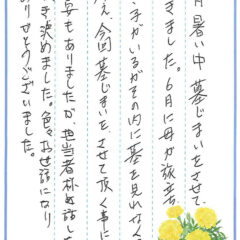 月暑い中墓じまいをさせて
きました。6月に母が旅立
子がいるがその内に墓を見れなく
え、今回墓じまいを、させて頂く事に
安もありましたが、担当者様と話した
き決めました。色々お世話になり
ありがとうございました。